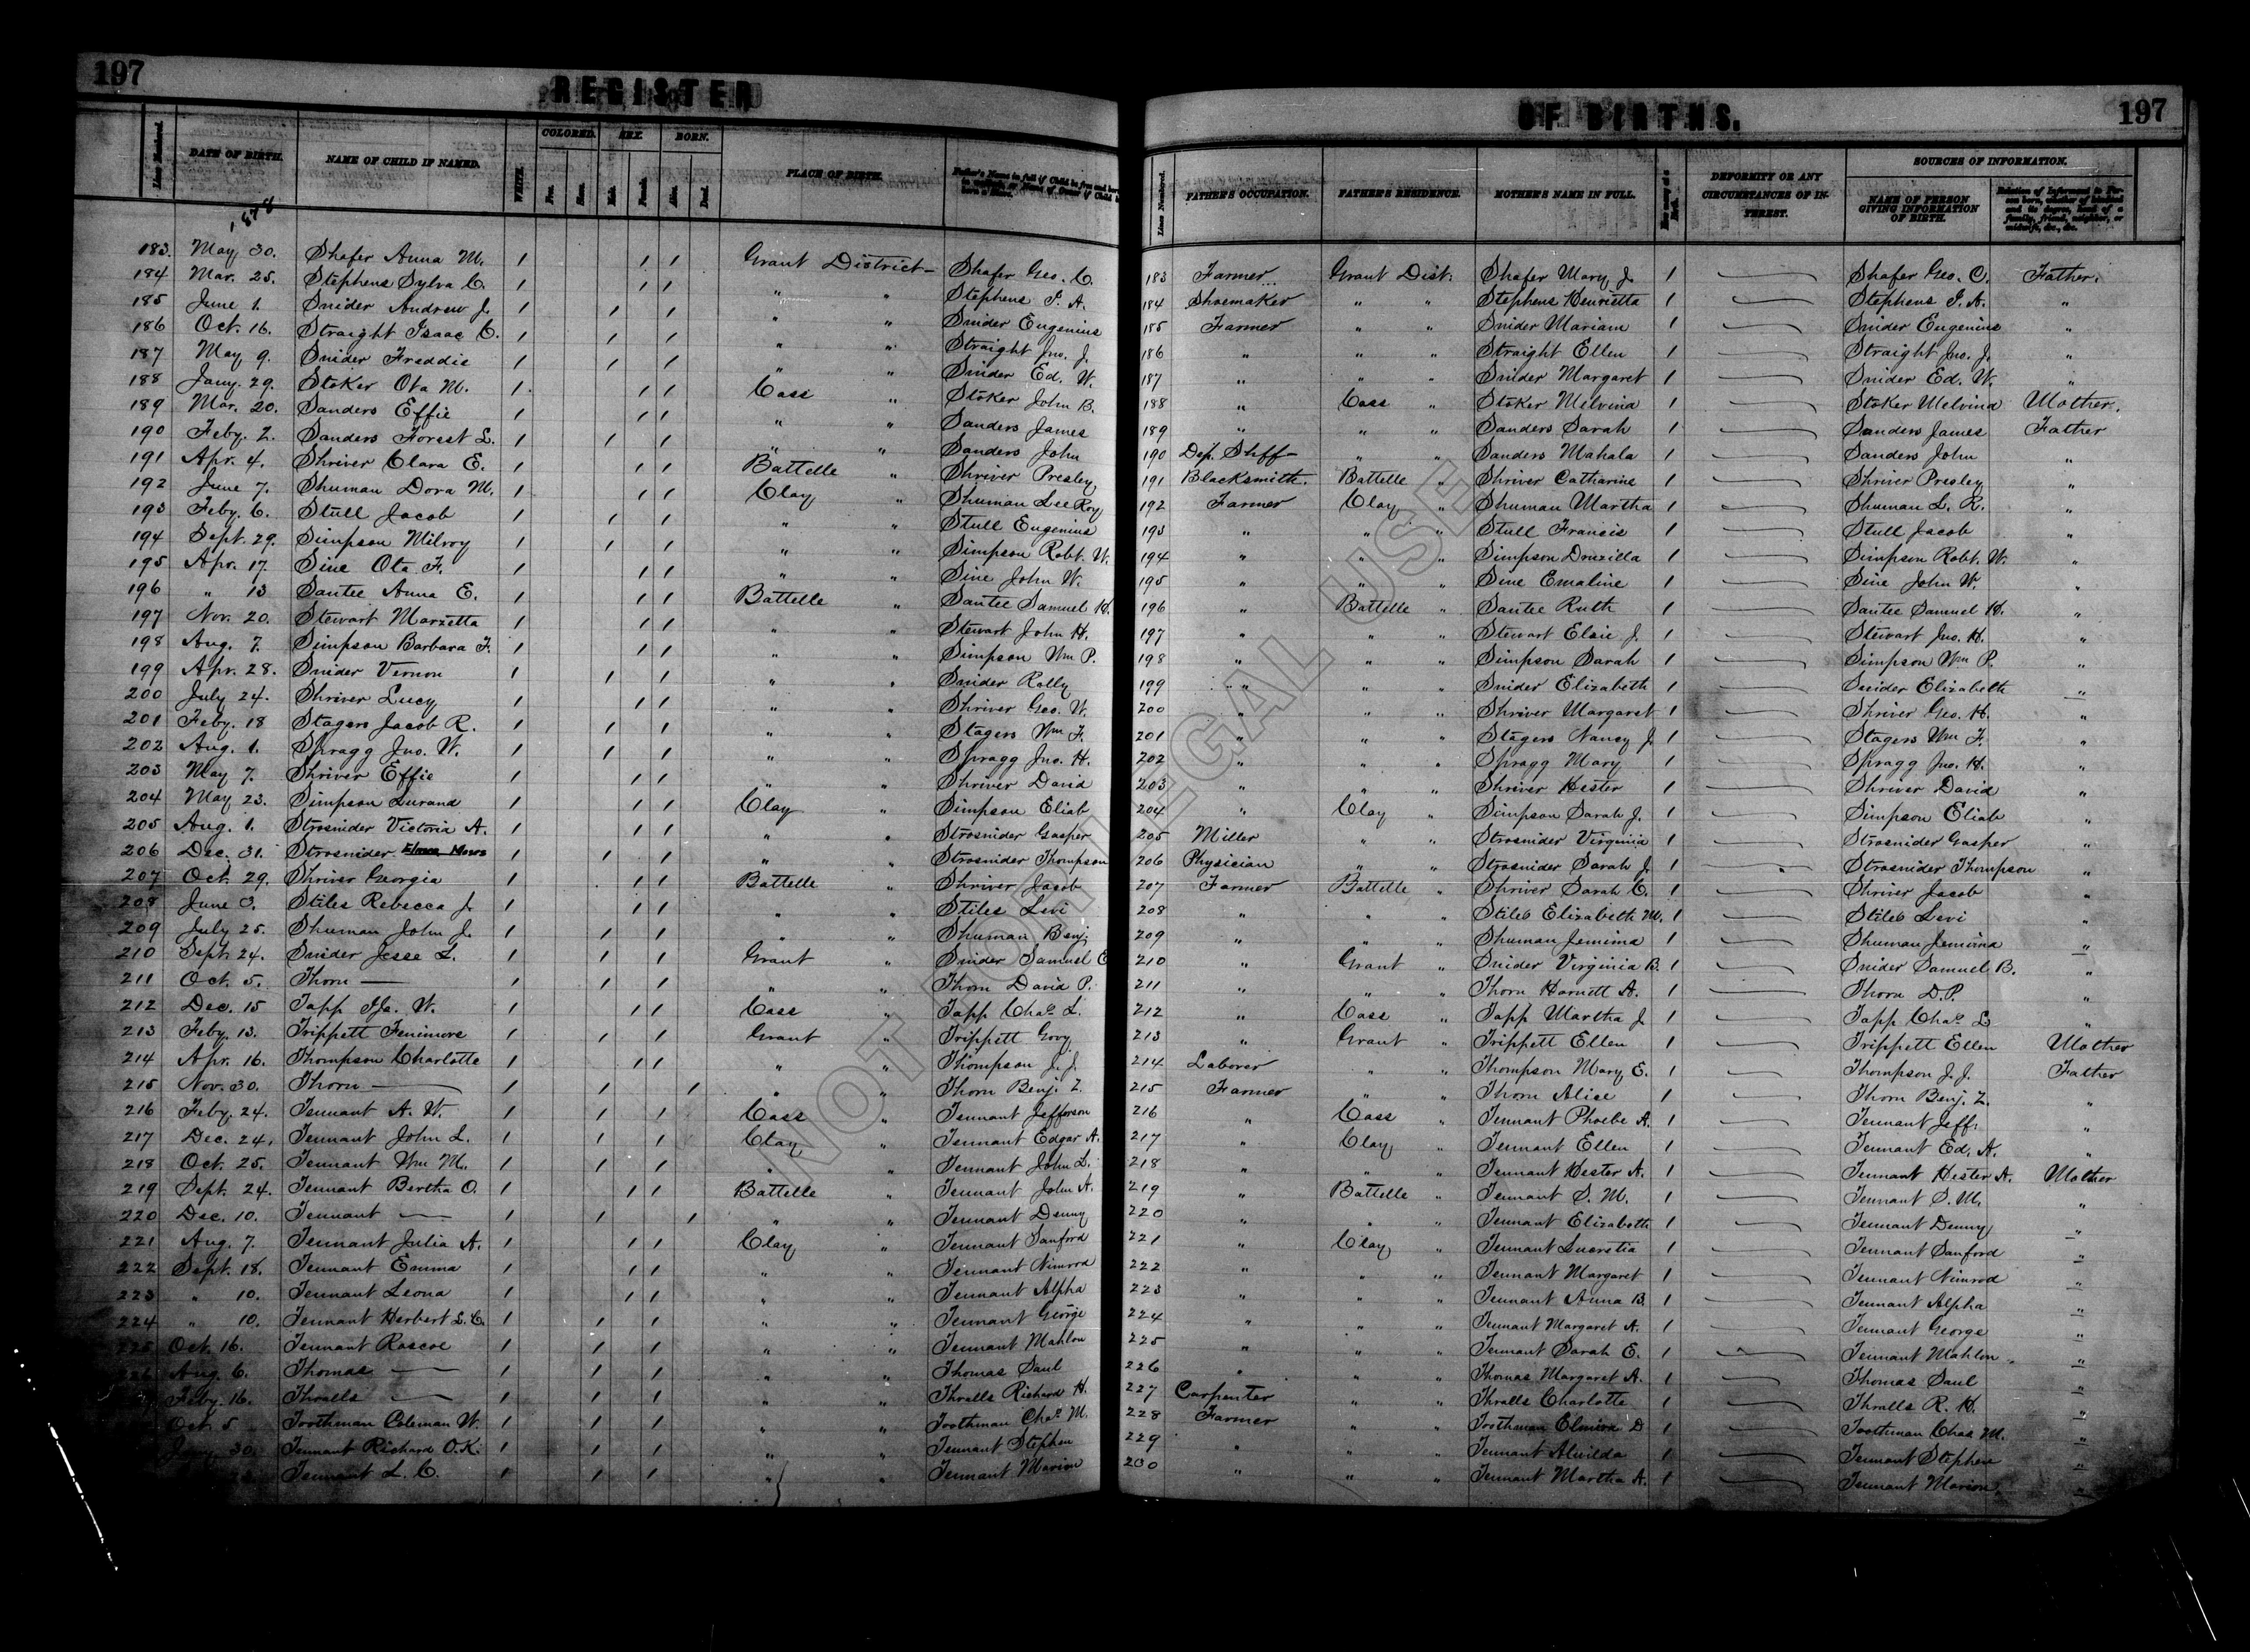 197
REGISTER
OF BIRTHS.
197
Line Numbered. DATE OF BIRTH. NAME OF CHILD IF NAMED. WHITE. COLORED. Free. Slave. SEX. Male. Female. BORN. Alive. Dead. PLACE OF BIRTH.
Lines Numbered. FATHER'S OCCUPATION. FATHER'S RESIDENCE. MOTHER'S NAME IN FULL. DEFORMITY OR ANY CIRCUMSTANCES OF INTEREST. SOURCES OF INFORMATION. NAME OF PERSON GIVING INFORMATION OF BIRTH.
1878
183. May 30. Shafer Anna M. 1 1 1 Grant District Shafer Geo. C. 183 Farmer Grant Dist. Shafer Mary J. 1 Shafer Geo. C. Father.
184 Mar. 25. Stephens Sylva C. 1 1 1 " " Stephens I. A. 184 Shoemaker " " Stephens Henrietta 1 Stephens I. A. "
185 June 1. Snider Andrew J. 1 1 1 " " Snider Eugenius 185 Farmer " " Snider Mariam 1 Snider Eugenius "
186 Oct. 16. Straight Isaac C. 1 1 1 " " Straight Jno. J. 186 " " " Straight Ellen 1 Straight Jno. J. "
187 May 9. Snider Freddie 1 1 1 " " Snider Ed. W. 187 " " " Snider Margaret 1 Snider Ed. W. "
188 Jany. 29. Stoker Ota M. 1 1 1 Cass " Stoker John B. 188 " Cass " Stoker Melvina 1 Stoker Melvina Mother.
189 Mar. 20. Sanders Effie 1 1 1 " " Sanders James 189 " " " Sanders Sarah 1 Sanders James Father
190 Feby. 2. Sanders Forest L. 1 1 1 " " Sanders John 190 Dep. Shff " " Sanders Mahala 1 Sanders John "
191 Apr. 4. Shriver Clara E. 1 1 1 Battelle " Shriver Presley 191 Blacksmith. Battelle " Shriver Catharine 1 Shriver Presley "
192 June 7. Shuman Dora M. 1 1 1 Clay " Shuman Lee Roy 192 Farmer Clay " Shuman Martha 1 Shuman L. R. "
193 Feby. 6. Stull Jacob 1 1 1 " " Stull Eugenius 193 " " " Stull Francis 1 Stull Jacob "
194 Sept. 29. Simpson Milroy 1 1 1 " " Simpson Robt. W. 194 " " " Simpson Druzilla 1 Simpson Robt. W. "
195 Apr. 17. Sine Ota F. 1 1 1 " " Sine John W. 195 " " " Sine Emaline 1 Sine John W. "
196 " 13 Santee Anna E. 1 1 1 Battelle " Santee Samuel H. 196 " Battelle " Santee Ruth 1 Santee Samuel H. "
197 Nov. 20. Stewart Marzetta 1 1 1 " " Stewart John H. 197 " " " Stewart Elsie J. 1 Stewart Jno. H. "
198 Aug. 7. Simpson Barbara F. 1 1 1 " " Simpson Wm P. 198 " " " Simpson Sarah 1 Simpson Wm P. "
199 Apr. 28. Snider Vernon 1 1 1 " " Snider Rolly 199 " " " Snider Elizabeth 1 Snider Elizabeth "
200 July 24. Shriver Lucy 1 1 1 " " Shriver Geo. W. 200 " " " Shriver Margaret 1 Shriver Geo. H. "
201 Feby. 18 Stagers Jacob R. 1 1 1 " " Stagers Wm F. 201 " " " Stagers Nancy J. 1 Stagers Wm F. "
202 Aug. 1. Spragg Jno. W. 1 1 1 " " Spragg Jno. H. 202 " " " Spragg Mary 1 Spragg Jno. H. "
203 May 7. Shriver Effie 1 1 1 " " Shriver David 203 " " " Shriver Hester 1 Shriver David "
204 May 23. Simpson Lurana 1 1 1 Clay " Simpson Eliab 204 " Clay " Simpson Sarah J. 1 Simpson Eliab "
205 Aug. 1. Strosnider Victoria A. 1 1 1 " " Strosnider Gasper 205 Miller " " Strosnider Virginia 1 Strosnider Gasper "
206 Dec. 31. Strosnider 1 1 1 " " Strosnider Thompson 206 Physician " " Strosnider Sarah J. 1 Strosnider Thompson "
207 Oct. 29. Shriver Georgia 1 1 1 Battelle " Shriver Jacob 207 Farmer Battelle " Shriver Sarah C. 1 Shriver Jacob "
208 June 3. Stiles Rebecca J. 1 1 1 " " Stiles Levi 208 " " " Stiles Elizabeth M. 1 Stiles Levi "
209 July 25. Shuman John J. 1 1 1 " " Shuman Benj. 209 " " " Shuman Jemima 1 Shuman Jemima "
210 Sept. 24. Snider Jesse L. 1 1 1 Grant " Snider Samuel 210 " Grant " Snider Virginia B. 1 Snider Samuel B. "
211 Oct. 5. Thorn — 1 1 1 " " Thorn David P. 211 " " " Thorn Harriett A. 1 Thorn D.P. "
212 Dec. 15 Tapp W. 1 1 1 Cass " Tapp Chas. L. 212 " Cass " Tapp Martha J 1 Tapp Chas. L "
213 Feby. 13. Trippett Fenimore 1 1 1 Grant " Trippett Govy 213 " Grant " Trippett Ellen 1 Trippett Ellen Mother
214 Apr. 16. Thompson Charlotte 1 1 1 " " Thompson J. J. 214 Laborer " " Thompson Mary E. 1 Thompson J. J. Father
215 Nov. 30. Thorn — 1 1 1 " " Thorn Benj. Z. 215 Farmer " " Thorn Alice 1 Thorn Benj. Z. "
216 Feby. 24. Tennant A. W. 1 1 1 Cass " Tennant Jefferson 216 " Cass " Tennant Phoebe A. 1 Tennant Jeff. "
217 Dec. 24. Tennant John L. 1 1 1 Clay " Tennant Edgar A. 217 " Clay " Tennant Ellen 1 Tennant Ed. A. "
218 Oct. 25. Tennant Wm M. 1 1 1 " " Tennant John L. 218 " " " Tennant Hester A. 1 Tennant Hester A. Mother
219 Sept. 24. Tennant Bertha O. 1 1 1 Battelle " Tennant John A. 219 " Battelle " Tennant S. M. 1 Tennant S. M. "
220 Dec. 10. Tennant — 1 1 1 " " Tennant Denny 220 " " " Tennant Elizabeth 1 Tennant Denny "
221 Aug. 7. Tennant Julia A. 1 1 1 Clay " Tennant Sanford 221 " Clay " Tennant Lucretia 1 Tennant Sanford "
222 Sept. 18. Tennant Emma 1 1 1 " " Tennant Nimrod 222 " " " Tennant Margaret 1 Tennant Nimrod "
223 " 10. Tennant Leona 1 1 1 " " Tennant Alpha 223 " " " Tennant Anna B. 1 Tennant Alpha "
224 " 10. Tennant Herbert L. C. 1 1 1 " " Tennant George 224 " " " Tennant Margaret A. 1 Tennant George "
225 Oct. 16. Tennant Roscoe 1 1 1 " " Tennant Mahlon 225 " " " Tennant Sarah E. 1 Tennant Mahlon "
226 Aug. 6. Thomas — 1 1 1 " " Thomas Saul 226 " " " Thomas Margaret A. 1 Thomas Saul "
Feby. 16. Thralls — 1 1 1 " " Thralls Richard H. 227 Carpenter " " Thralls Charlotte 1 Thralls R. H. "
Oct. 5 Toothman Coleman W. 1 1 1 " " Toothman Chas. M. 228 Farmer " " Toothman Elmira D 1 Toothman Chas M. "
30. Tennant Richard O.K. 1 1 1 " " Tennant Stephen 229 " " " Tennant Alwilda 1 Tennant Stephen "
Tennant L. C. 1 1 1 " " Tennant Marion 230 " " " Tennant Martha A. 1 Tennant Marion "
NOT FOR LEGAL USE